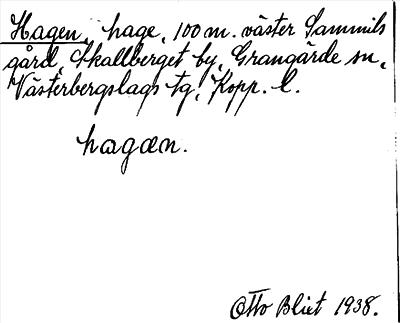 Hagen, hage, 100 m. väster Sammils
gård, Skallberget by, Grangärde sn,
Västerbergslags tg, Kopp. l.
hagæn.
Otto Blixt 1938.